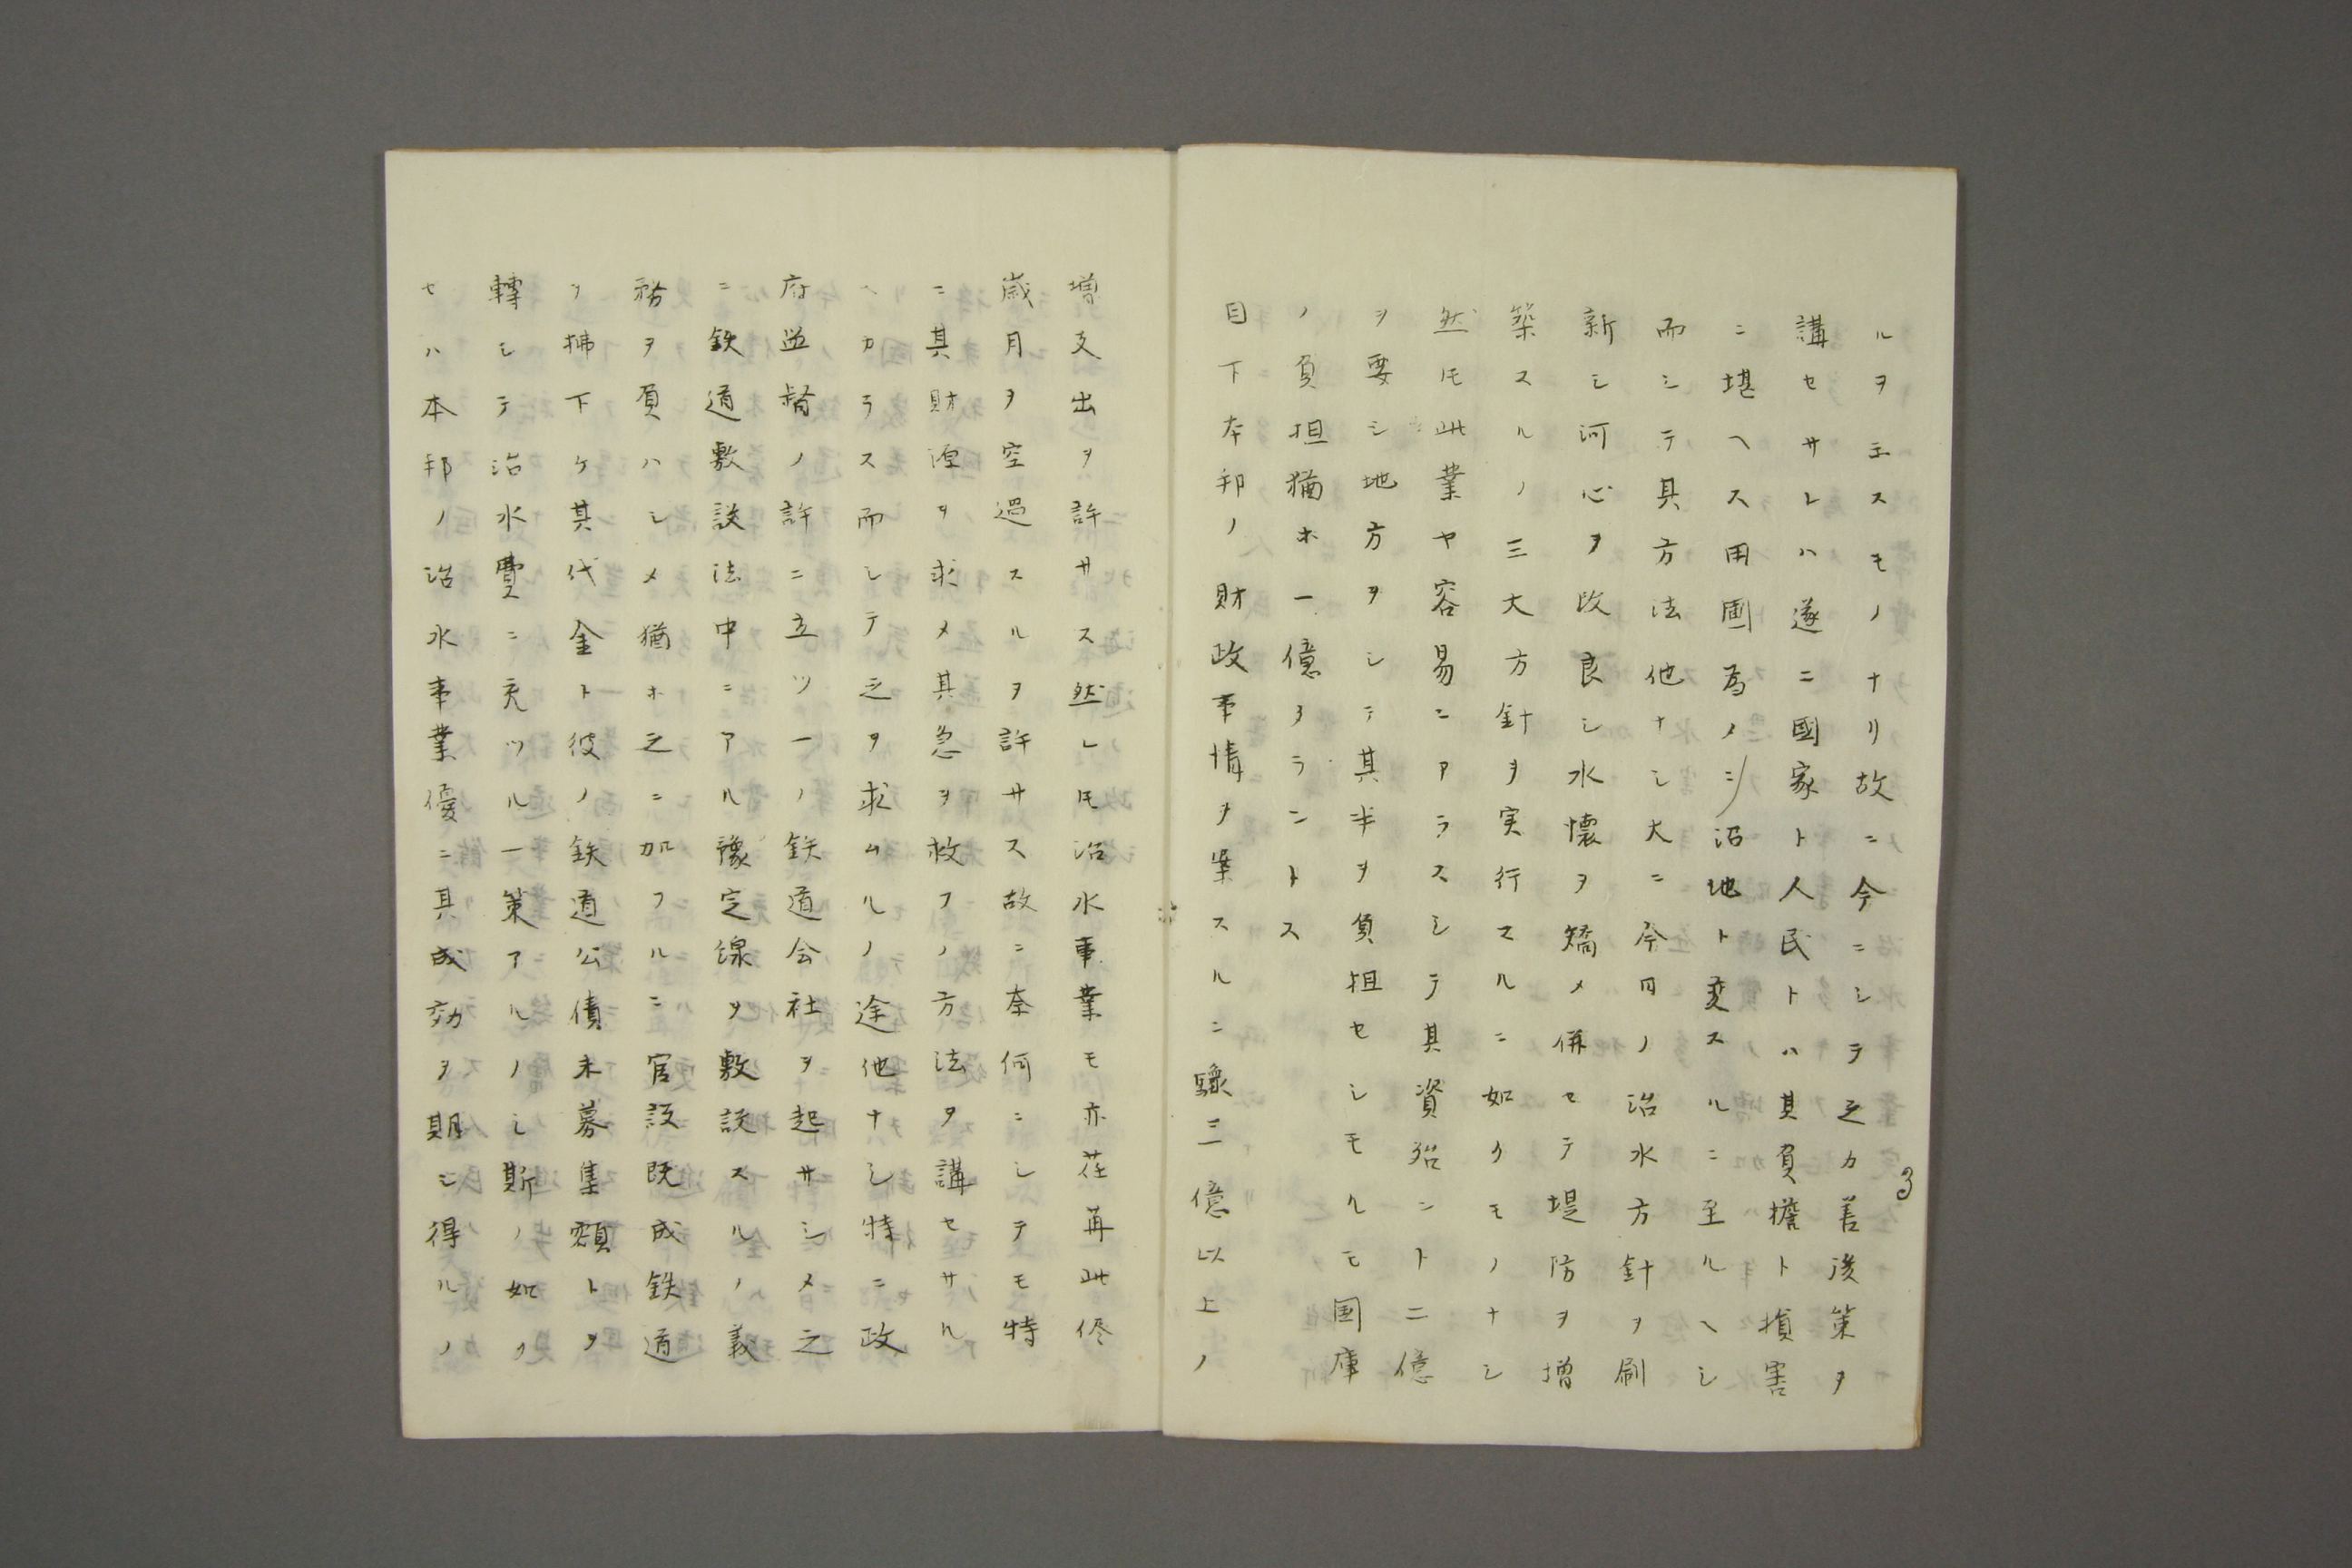 3
ルヲエスモノナリ故ニ今ニシテ之カ善後策ヲ
講セサレハ遂ニ國家ト人民トハ其負擔ト損害
ニ堪ヘス田圃為ノニ沼地ト変スルニ至ルヘシ
而シテ其方法他ナシ大ニ今日ノ治水方針ヲ刷
新シ河心ヲ改良シ水懐ヲ矯メ併セテ堤防ヲ増
築スルノ三大方針ヲ実行スルニ如クモノナシ
然ルモ此業ヤ容易ニアラスシテ其資殆ント二億
ヲ要シ地方ヲシテ其半ヲ負担セシモルモ国庫
ノ負担猶ホ一億タラントス
目下本邦ノ財政事情ヲ案スルニ驟ニ億以上ノ
増支出ヲ許サス然レ𪜈治水事業モ亦荏苒此侭
歳月ヲ空過スルヲ許サス故ニ奈何ニシテモ特
ニ其財源ヲ求メ其急ヲ救フノ方法ヲ講セサル
ヘカラス而シテ之ヲ求ムルノ途他ナシ特ニ政
府监督ノ許ニ立ツ一ノ鉄道会社ヲ起サシメ之
ニ鉄道敷設法中ニアル豫定線ヲ敷設スルノ義
務ヲ負ハシメ猶ホ之ニ加フルニ官設既成鉄道
ヲ拂下ケ其代金ト彼ノ鉄道公債未募集額トヲ
轉シテ治水費ニ充ツル一策アルノミ斯ノ如ク
セハ本邦ノ治水事業優ニ其成効ヲ期シ得ルノ